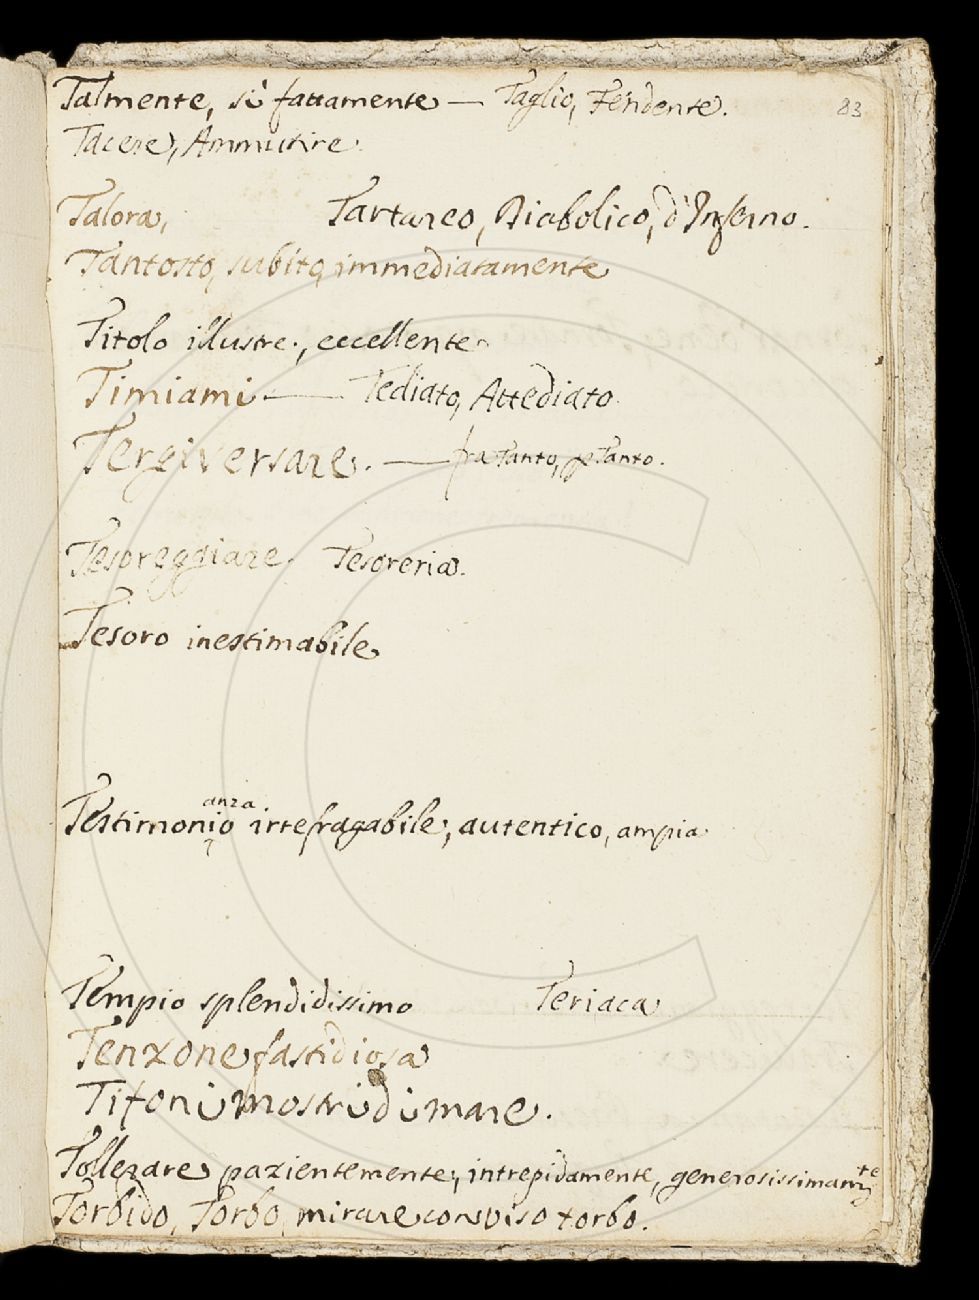 Talmente, sì fattamente — Taglio, Fendente. 83
Tacere, Ammutire.
Talora, Tartareo, Diabolico, d'Inferno.
Tantosto, subito, immediatamente
Titolo illustre, eccellente
Timiami — Tediato, Attediato.
Tergiversare. — fra Tanto, Tanto.
Tesoreggiare. Tesoreria.
Tesoro inestimabile
anza
Testimonio irrefragabile, autentico, ampia
Tempio splendidissimo Teriaca
Tenzone fastidiosa
Tifoni mostri di mare.
Tollerare pazientemente, intrepidamente, generosissimamte
Torbido, Torbo, mirare con viso torbo.